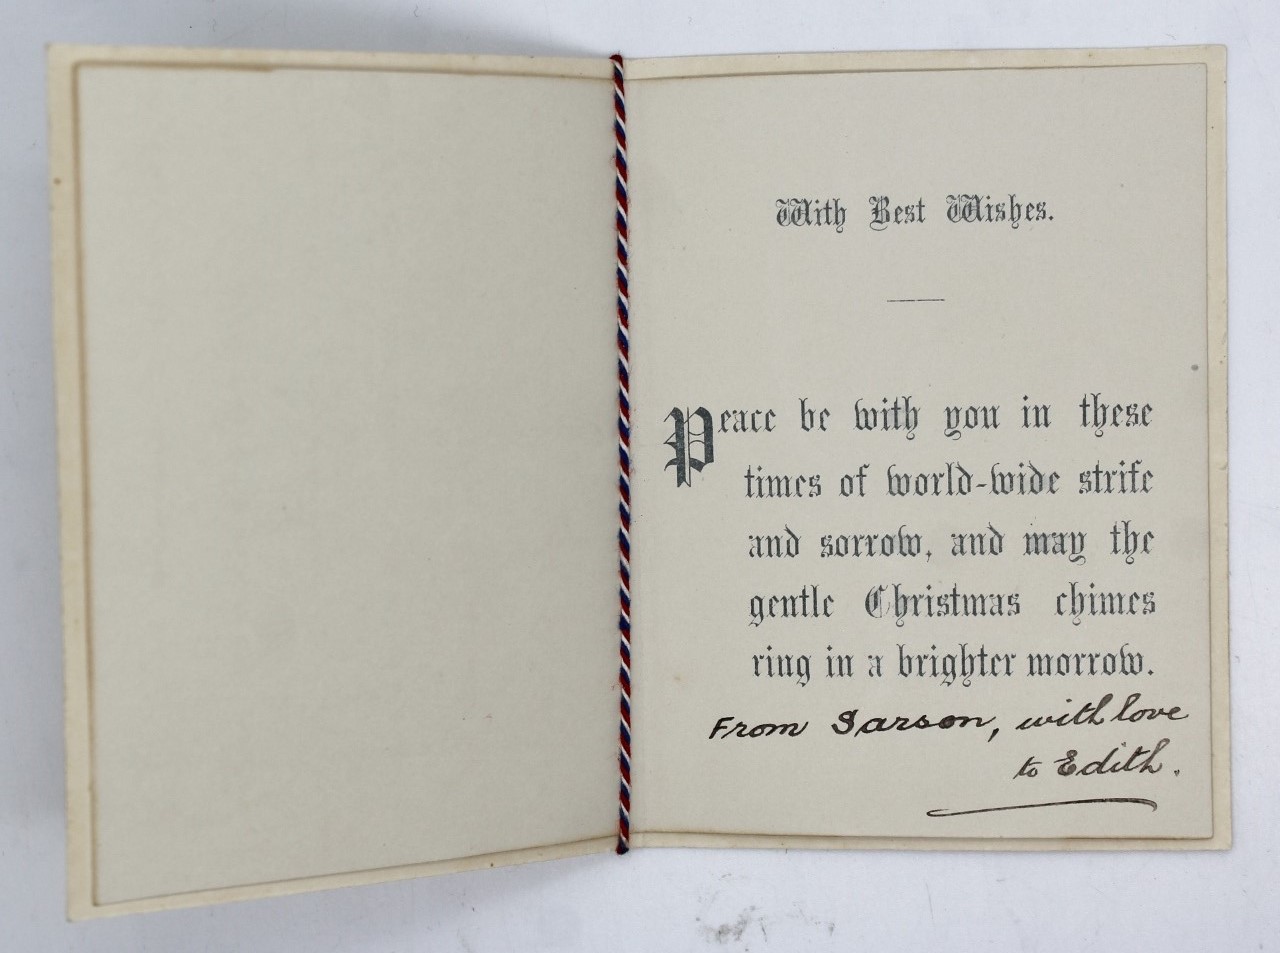 With Best Wishes.
Peace be with you in these
times of world-wide strife
and sorrow, and may the
gentle Christmas chimes
ring in a brighter morrow.
From Sarson, with love
to Edith.